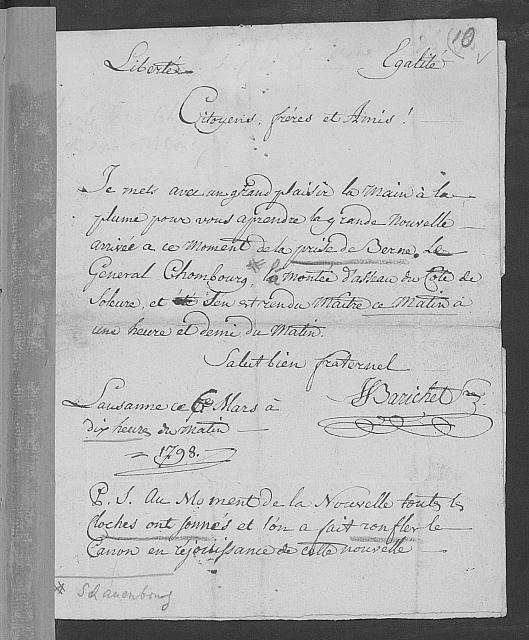 10
Liberté Egalité
Citoyens, fréres et Amis!
Je mets avec un grand plaisir la Main à la
plume pour vous aprendre la grande Nouvelle
arrivée a ce Moment de la prise de Berne. Le
General Chombourg, * la montée d'assau du Coté de
Soleure, et s'en est rendu Maitre ce Matin à
une heure et demi du Matin.
Salut bien fraternel
Barichet
Lausanne ce 6e Mars à
dix heures du Matin
1798.
P. S. Au Moment de la Nouvelle toutes les
Cloches ont sonnés et l'on a fait ronfler le
Canon en rejouissance de cette nouvelle
* Schauenbourg